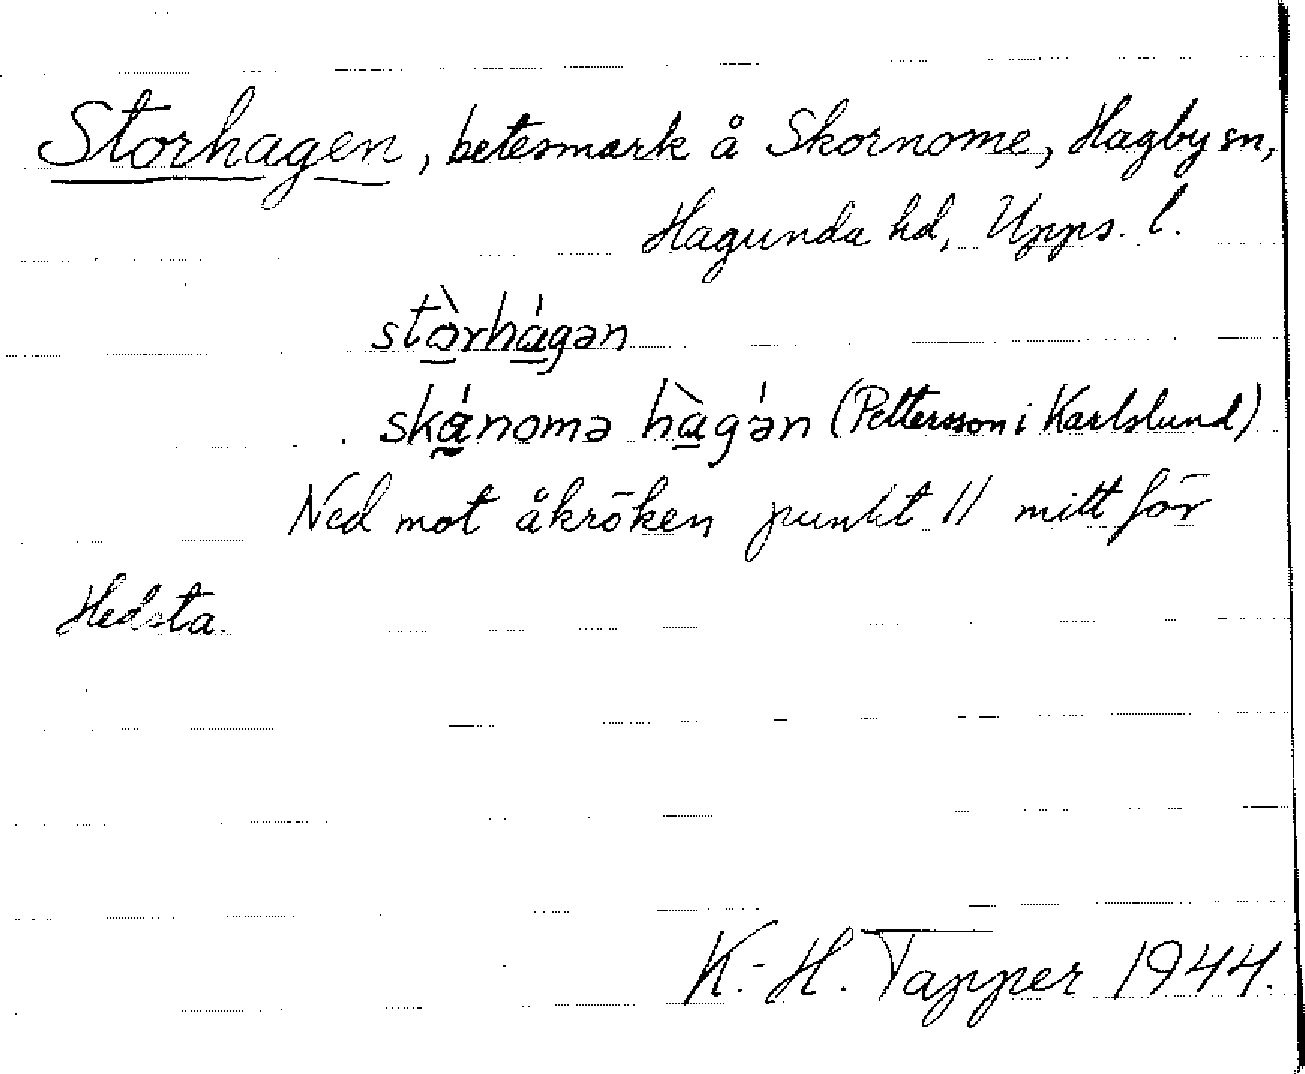 Storhagen, betesmark å Skornome, Hagby sn,
Hagunda hd, Upps. l.
stòrhágən
skánomə hàgə́n (Pettersson i Karlslund)
Ned mot åkröken punkt 11 mitt för
Hedsta.
K.-H. Tapper 1944.